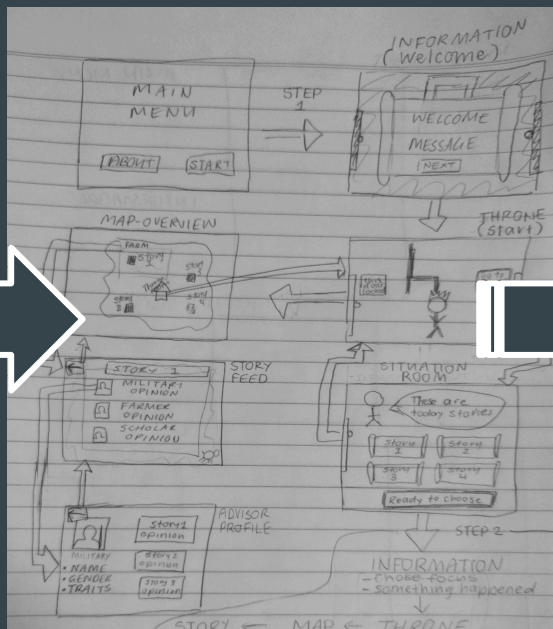 INFORMATION
(Welcome)
MAIN
MENU
ABOUT
START
STEP
1
WELCOME
MESSAGE
NEXT
MAP-OVERVIEW
THRONE
(start)
FARM
Story
Story
3
Story
4
STORY 1
MILITARY
OPINION
FARMER
OPINION
SCHOLAR
OPINION
STORY
FEED
SITUATION
ROOM
These are
today stories
Story
1
Story
2
Story
3
Story
4
Ready to choose
ADVISOR
PROFILE
MILITARY
• NAME
• GENDER
• TRAITS
Story1
opinion
Story2
opinion
Story3
opinion
STEP 2
INFORMATION
- chose focus
- something happened
STORY ← MAP ← THRONE